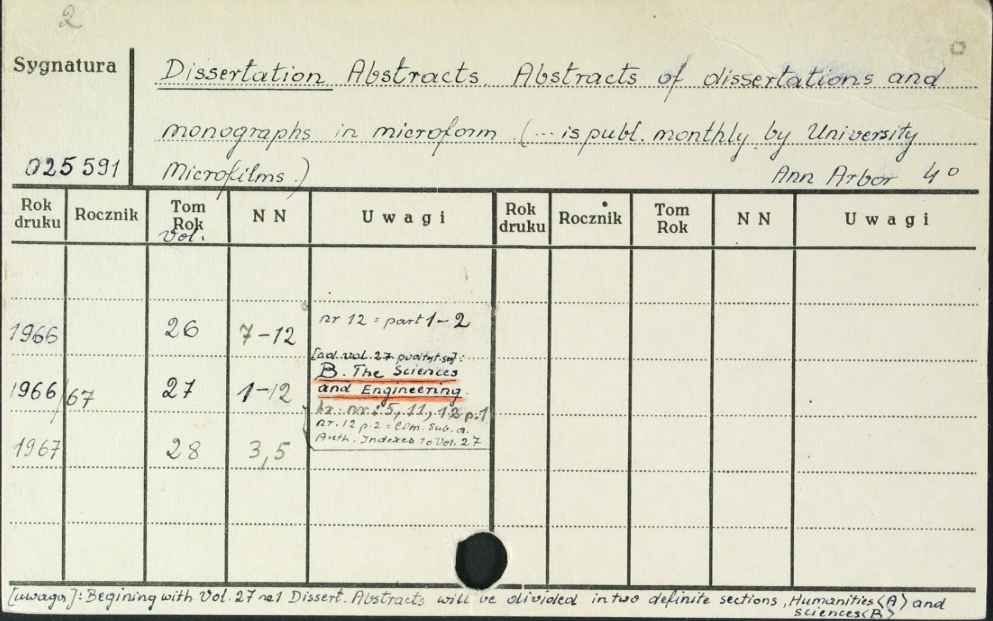 2
Sygnatura
Dissertation Abstracts. Abstracts of dissertations and
monographs in microform (... is publ. monthly by University
025591 Microfilms.) Ann Arbor 4°
Rok druku Rocznik Tom Rok Vol. NN Uwagi Rok druku Rocznik Tom Rok NN Uwagi
1966 26 7-12 nr 12 = part 1-2
[od vol. 27
B. The Sciences
1966/67 27 1-12 and Engineering.
nr. 5, 11, 12 p. 1
nr. 12 p. 2 =
1967 28 3,5 Auth. Indexes to Vol. 27
[uwaga]: Begining with Vol. 27 no 1 Dissert. Abstracts will be divided in two definite sections, Humanities <A> and
Sciences <B>